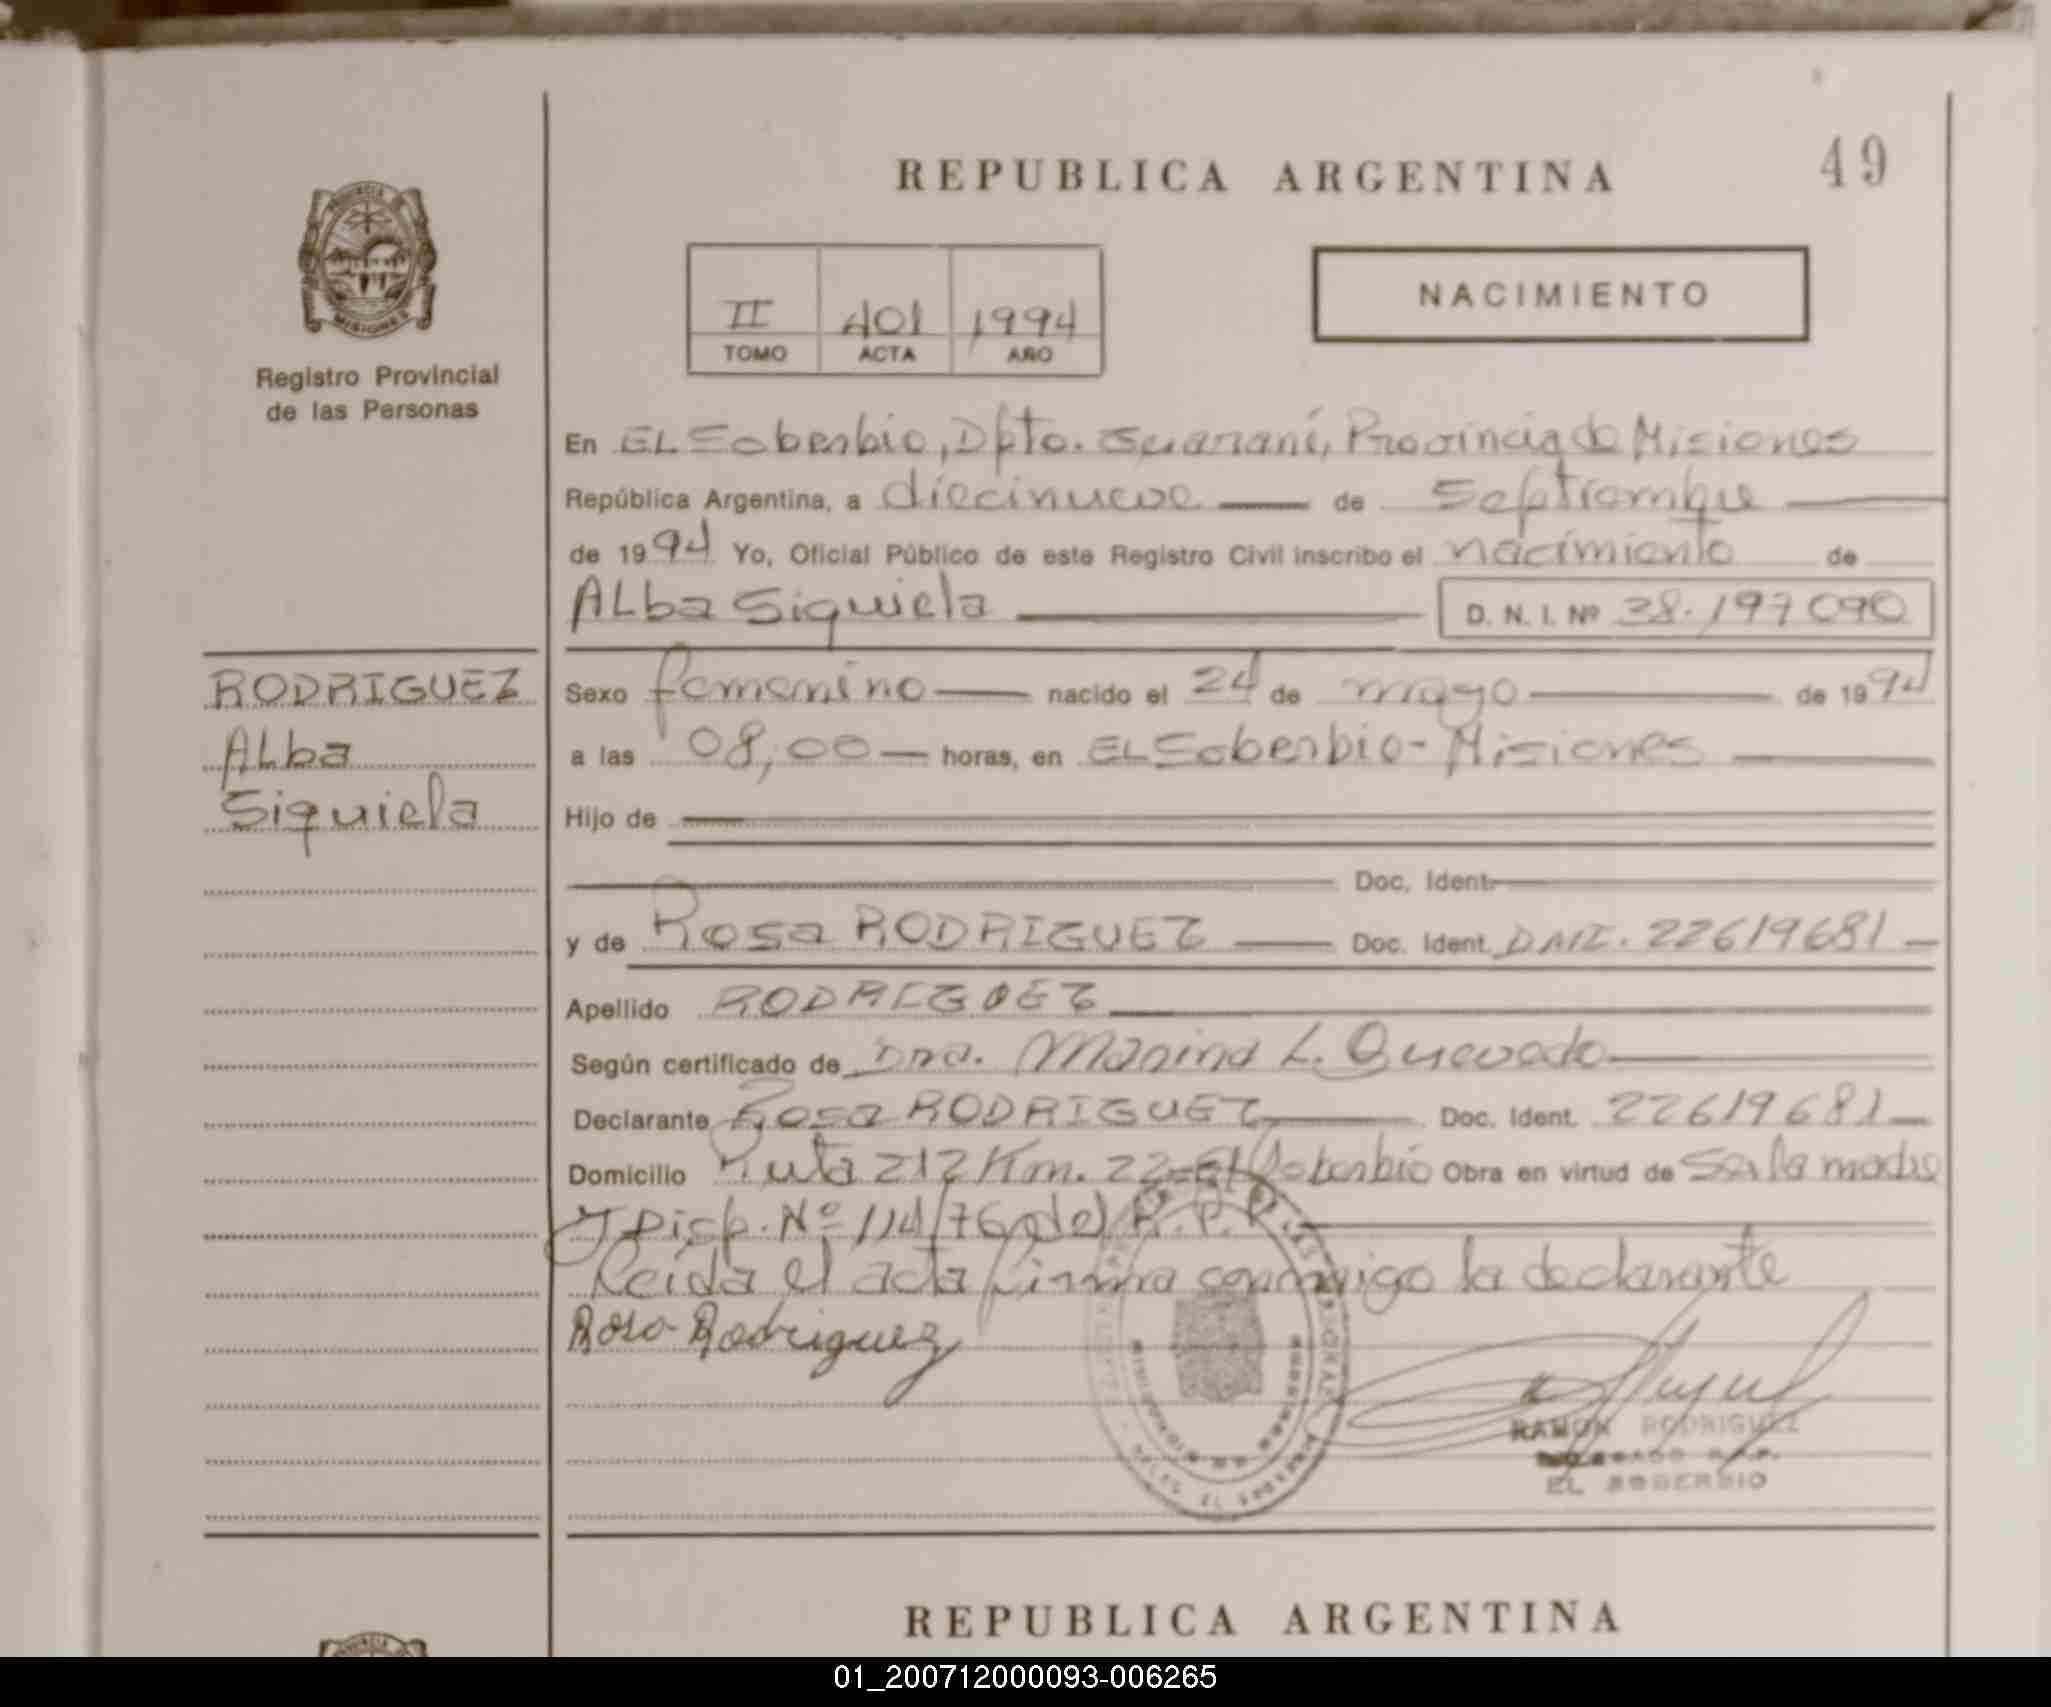 REPUBLICA ARGENTINA
49
PROVINCIA
MISIONES
Registro Provincial
de las Personas
II 401 1994
TOMO ACTA AÑO
NACIMIENTO
En EL Soberbio, Dpto. Guaraní, Provincia de Misiones
República Argentina, a diecinueve de Septiembre
de 1994 Yo, Oficial Público de este Registro Civil inscribo el nacimiento de
ALba Siquiela D. N. I. Nº 38.197 090
RODRIGUEZ
ALba
Siquiela
Sexo femenino nacido el 24 de mayo de 1994
a las 08,00 horas, en EL Soberbio - Misiones
Hijo de
Doc. Ident.
y de Rosa RODRIGUEZ Doc. Ident. DNI. 22619681
Apellido RODRIGUEZ
Según certificado de Dra. Marina L. Quevedo
Declarante Rosa RODRIGUEZ Doc. Ident. 22619681
Domicilio Ruta 212 Km. 22 - El Soberbio Obra en virtud de Ser la madre
y Disp. Nº 114/76 del R.P.P.
Leida el acta firma conmigo la declarante
Rosa Rodriguez
RAMON RODRIGUEZ
DELEGADO R.P.P.
EL SOBERBIO
REPUBLICA ARGENTINA
01_200712000093-006265